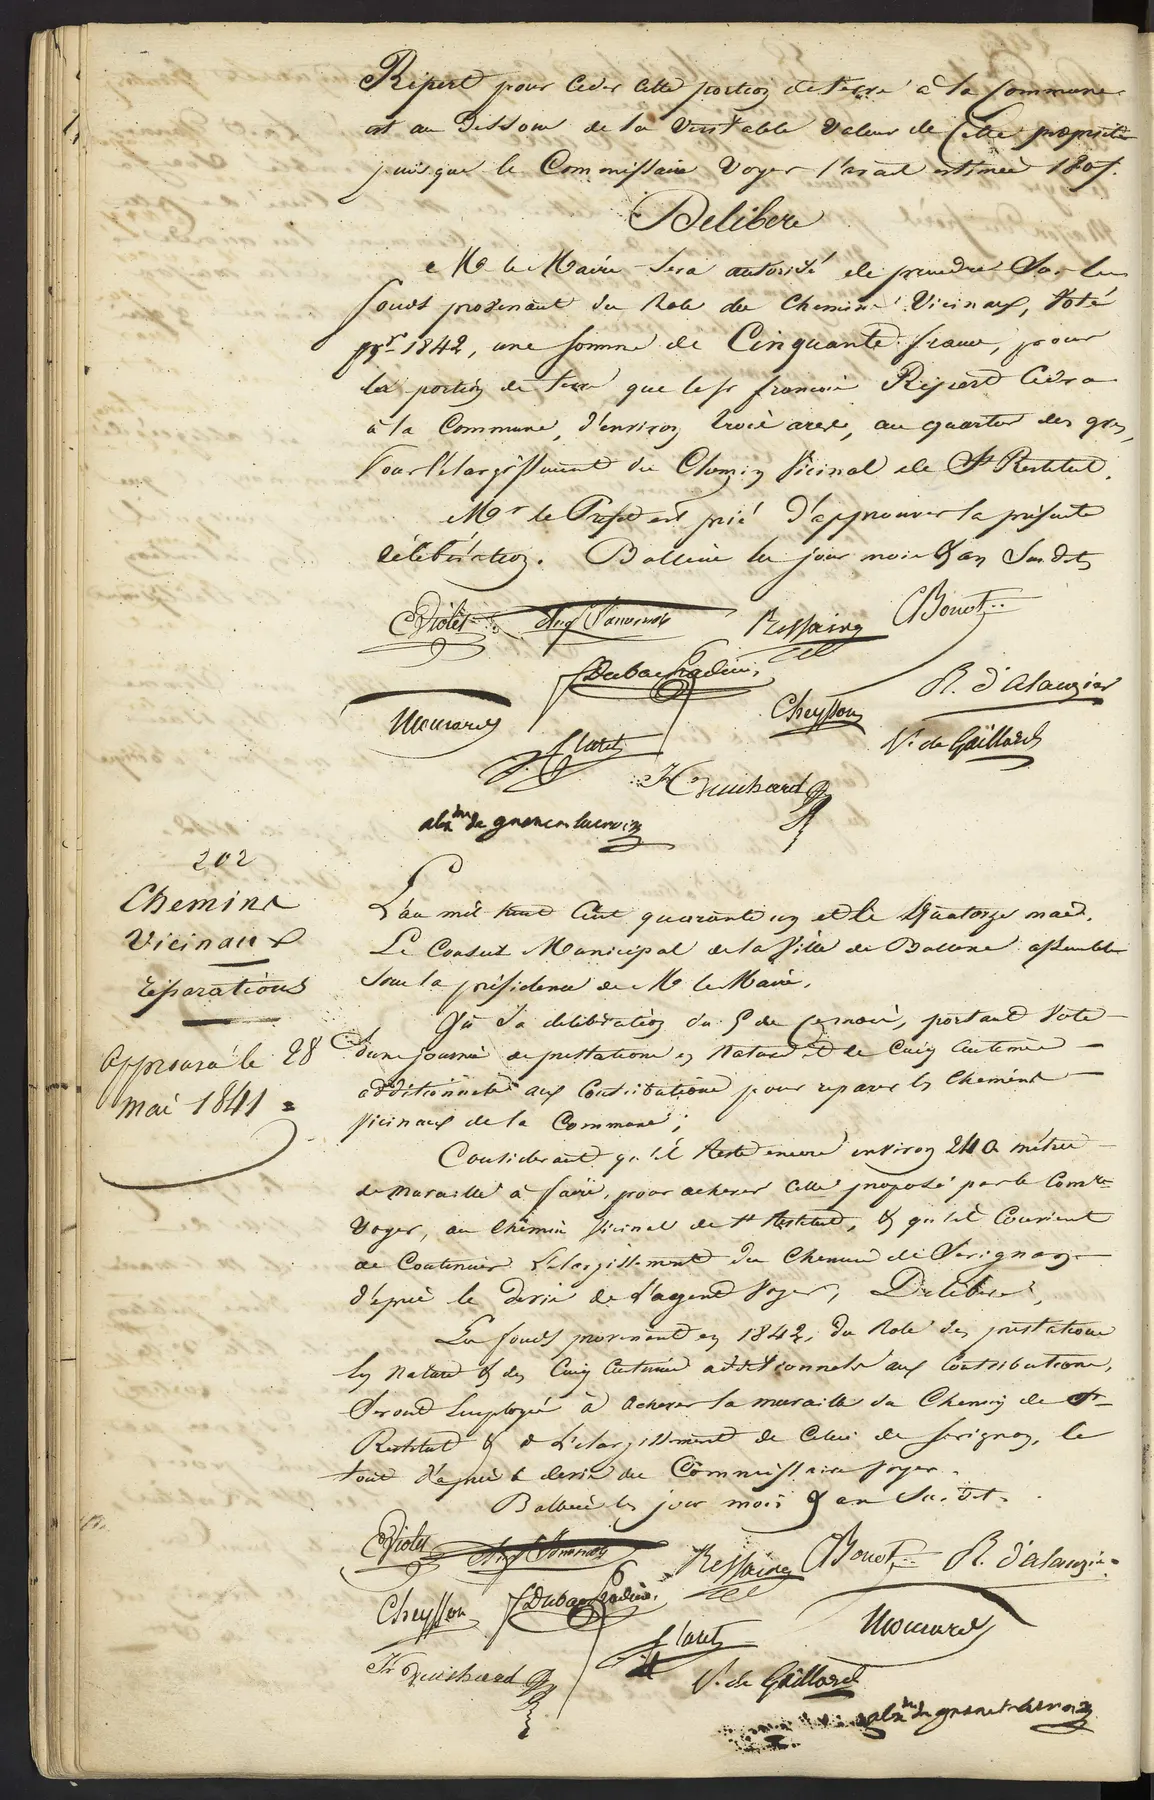 Ripert pour ceder cette portion de terre à la Commune
est au dessous de la veritable valeur de cette propriété
puisque le Commissaire Voyer l'avait estimée 180f.
Delibere
Mr le Maire sera autorisé de prendre sur les
fonds provenant du Role des chemins Vicinaux, voté
pr 1842, une somme de Cinquante francs, pour
la portion de terre que le Sr francois Ripert cedera
à la Commune, d'environ trois ares, au quartier des gres,
pour l'élargissement du Chemin Vicinal de St Restitut.
Mr le Prefet est prié d'approuver la présente
délibération. Bollène les jour mois & an susdits
Violès
Ressaire
CBonot
R. d'Alauzier
Cheysson
Mourard
V. de Gaillard
flaret
Fr Guichard
alxdre de granet lacroix
202
Chemins
Vicinaux
réparations
approuvé le 28
mai 1841
L'an mil huit Cent quarante un et le quatorze mai.
Le Conseil Municipal de la Ville de Bollene assemblé
sous la présidence de Mr le Maire.
Vu sa deliberation du 5 de ce mois, portant vote
d'une journée de prestations en nature et de Cinq Centimes
additionnels aux Contributions pour reparer les Chemins
vicinaux de la Commune;
Considerant qu'il reste encore environ 240 mètres
de muraille à faire, pour achever celle proposée par le Comre
Voyer, au chemin vicinal de St Restitut, & qu'il Convient
de Continuer l'elargissement du Chemin de Serignan
d'après le devis de l'agent Voyer, Delibère,
Les fonds provenant en 1842, du Role des prestations
en nature & des Cinq Centimes additionnels aux Contributions,
Seront employés à achever la muraille du Chemin de St
Restitut & à l'élargissement de Celui de Serignan, le
tout d'après le devis du Commissaire voyer.
Bollène les jour mois & an susdits.
Violès
Ressaire
CBonot
R. d'Alauzier
Cheysson
flaret
Mourard
Fr Guichard
V. de Gaillard
alxdre de granet lacroix